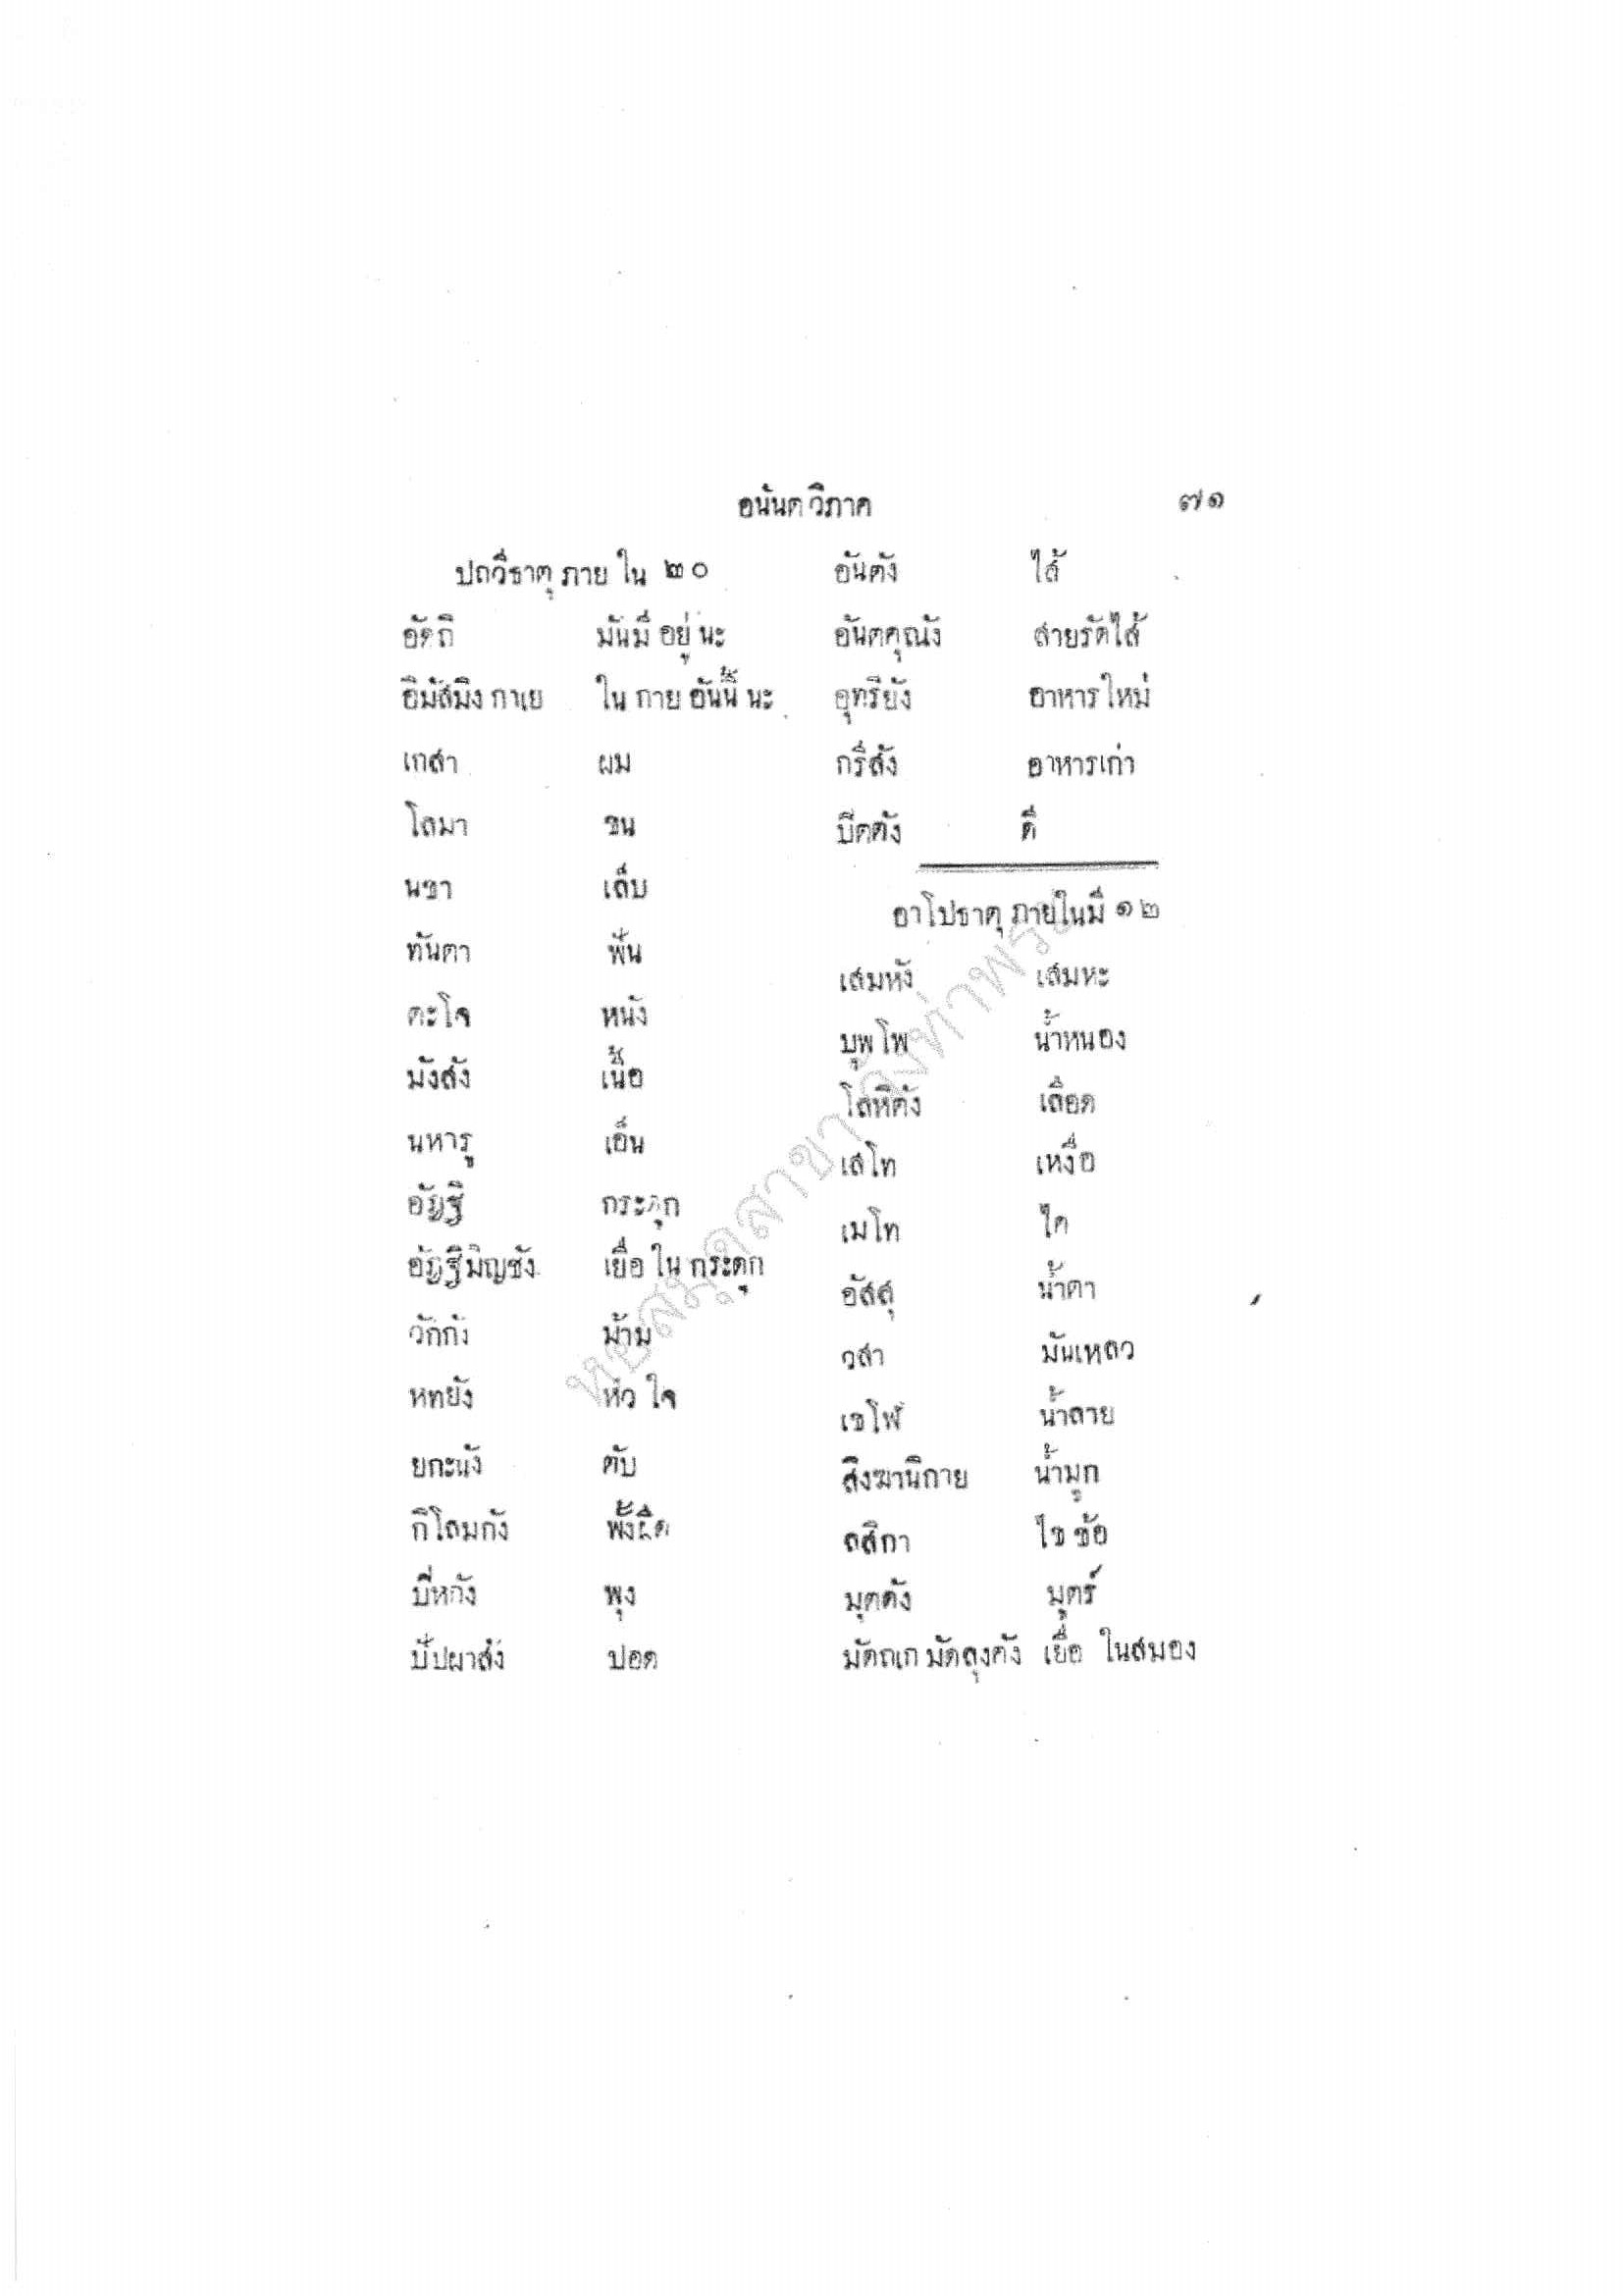 อนันตวิภาค ๗๑
ปถวีธาตุ ภาย ใน ๒๐
อัตถิ มันมี อยู่ นะ
อิมัสมิง กาเย ใน กาย อันนี้ นะ
เกสา ผม
โลมา ขน
นขา เล็บ
ทันตา ฟัน
ตะโจ หนัง
มังสัง เนื้อ
นหารู เอ็น
อัฏฐิ กระดูก
อัฏฐิมิญชัง เยื่อ ใน กระดูก
วักกัง ม้าม
หทยัง หัว ใจ
ยกะนัง ตับ
กิโลมกัง พังผืด
ปิหกัง พุง
ปัปผาสัง ปอด
อันตัง ไส้
อันตคุณัง สายรัดไส้
อุทริยัง อาหารใหม่
กรีสัง อาหารเก่า
ปิตตัง ดี
อาโปธาตุ ภายในมี ๑๒
เสมหัง เสมหะ
บุพโพ น้ำหนอง
โลหิตัง เลือด
เสโท เหงื่อ
เมโท ไค
อัสสุ น้ำตา
วสา มันเหลว
เขโฬ น้ำลาย
สิงฆานิกาย น้ำมูก
ลสิกา ไข ข้อ
มุตตัง มูตร์
มัตถเก มัตถลุงคัง เยื่อ ในสมอง
หอสมุดสาขา วังท่าพระ